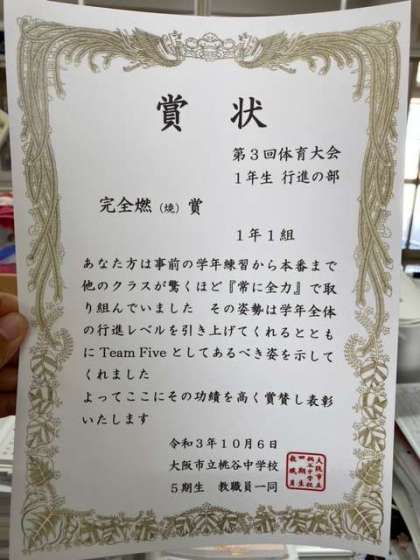 賞状
第3回体育大会
1年生 行進の部
完全燃(焼)賞
1年1組
あなた方は事前の学年練習から本番まで
他のクラスが驚くほど『常に全力』で取
り組んでいました その姿勢は学年全体
の行進レベルを引き上げてくれるととも
に Team Five としてあるべき姿を示して
くれました
よってここにその功績を高く賞賛し表彰
いたします
令和3年10月6日
大阪市立桃谷中学校
5期生 教職員一同